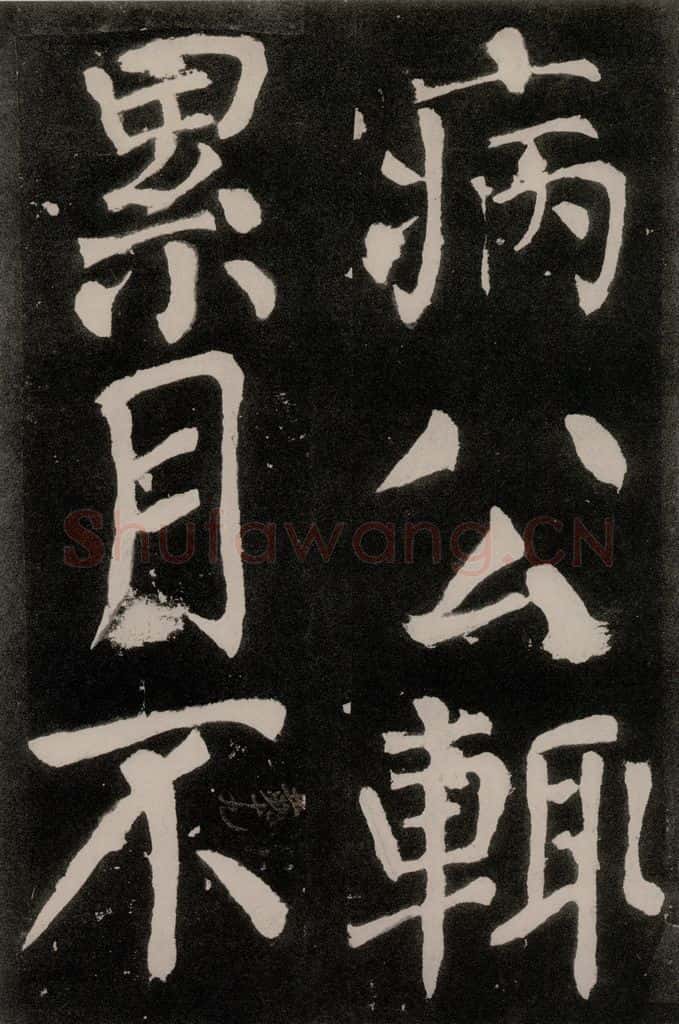 病公輙
累目不
Shufawang.CN